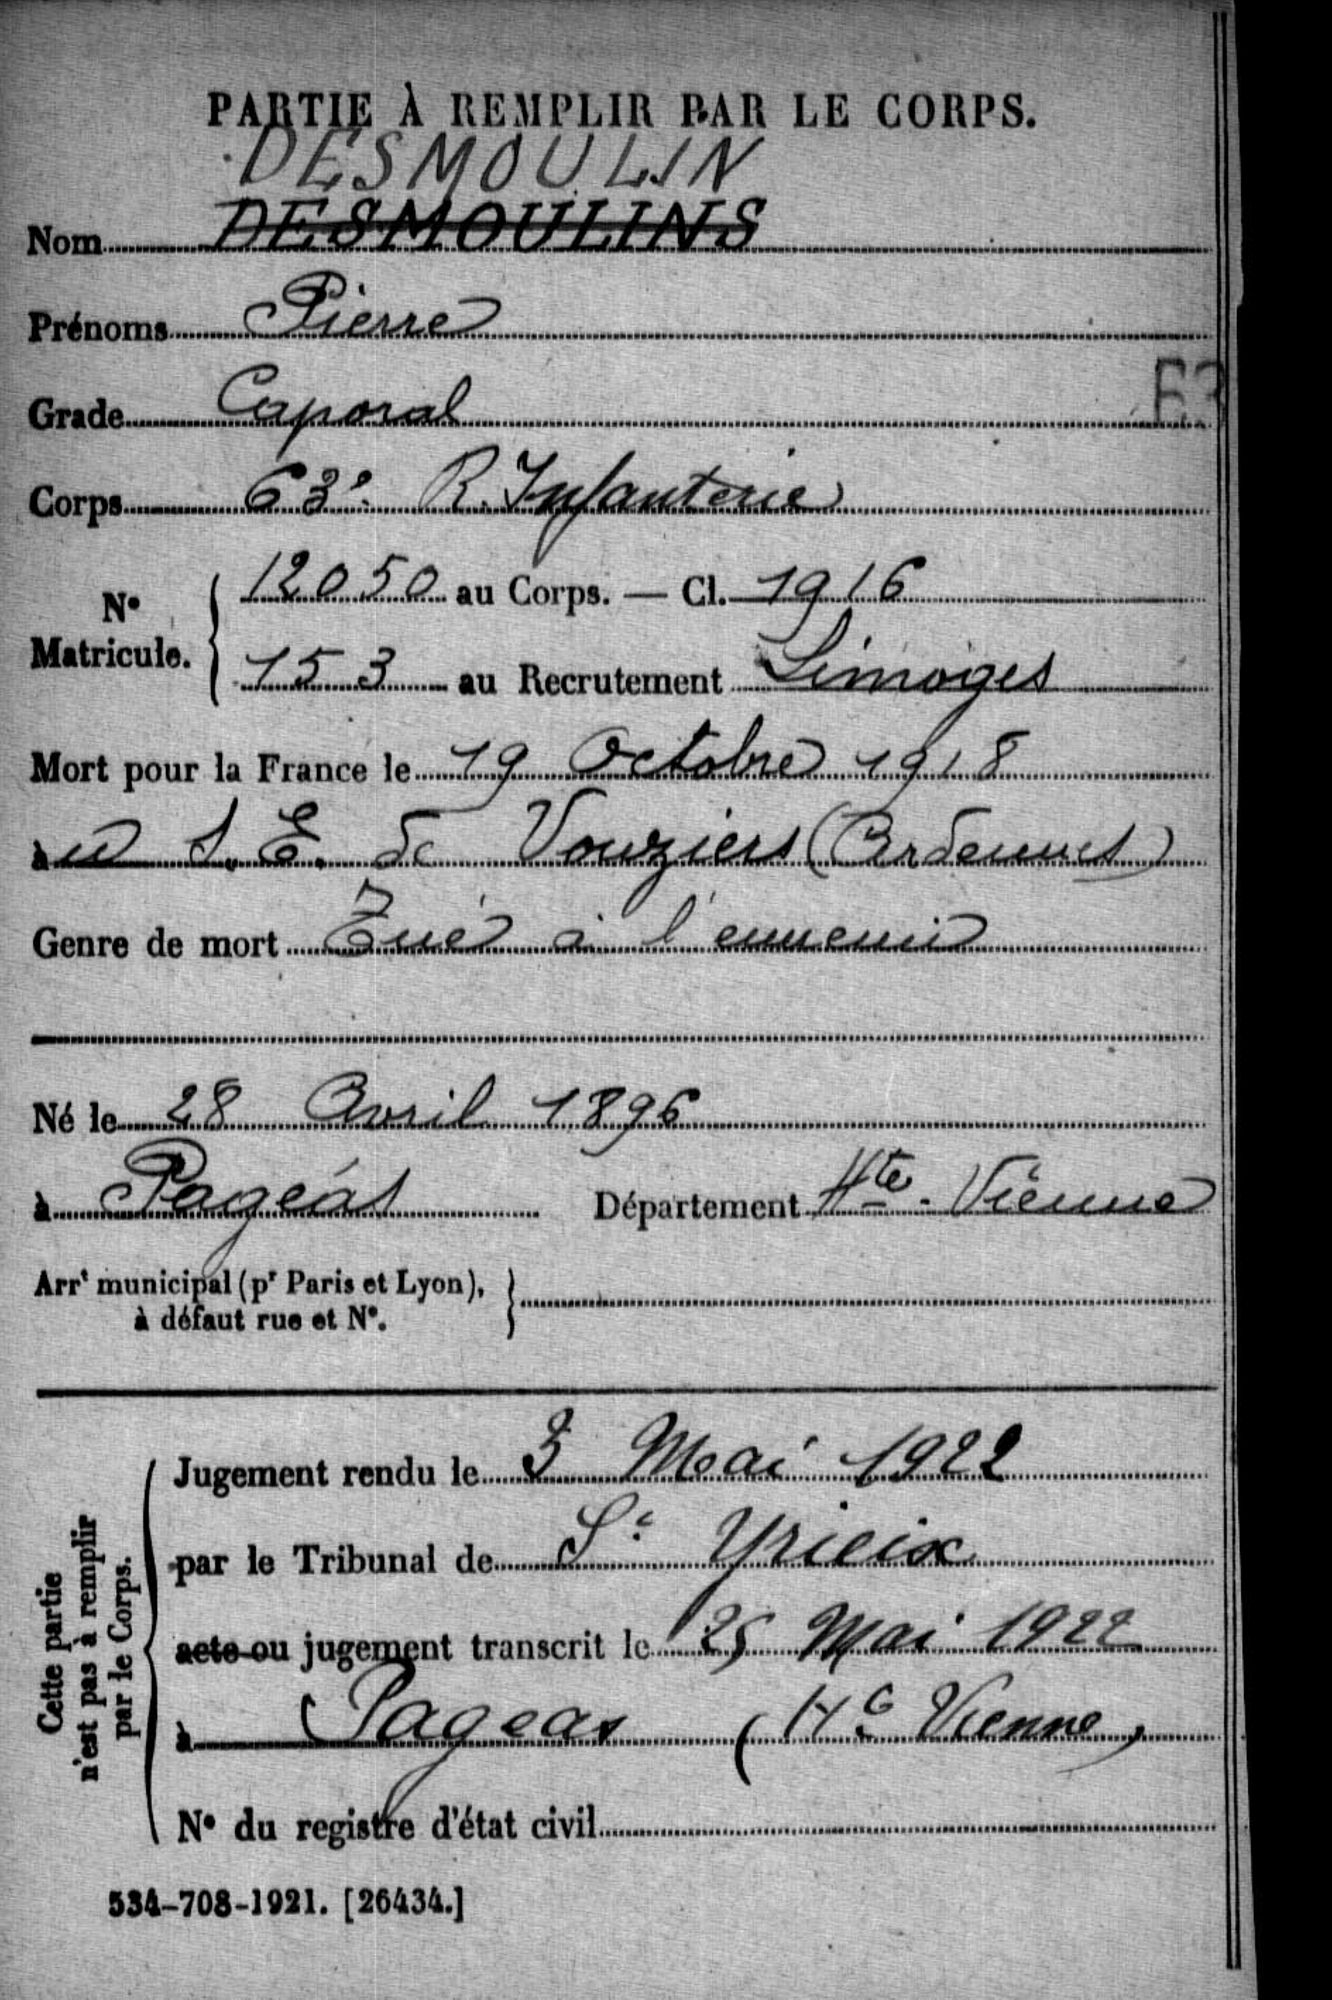 PARTIE À REMPLIR PAR LE CORPS.
DESMOULIN
Nom DESMOULINS
Prénoms Pierre
Grade Caporal
Corps 63e R. Infanterie
N° Matricule. 12050 au Corps. — Cl. 1916
153 au Recrutement Limoges
Mort pour la France le 19 Octobre 1918
à u S. E. de Vouziers (Ardennes)
Genre de mort Tué à l'ennemi
Né le 28 Avril 1896
à Pageas Département Hte-Vienne
Arrt municipal (pr Paris et Lyon),
à défaut rue et N°.
Cette partie
n'est pas à remplir
par le Corps.
Jugement rendu le 3 Mai 1922
par le Tribunal de St Yrieix
acte ou jugement transcrit le 25 Mai 1922
à Pageas (Hte Vienne)
N° du registre d'état civil
534-708-1921. [26434.]